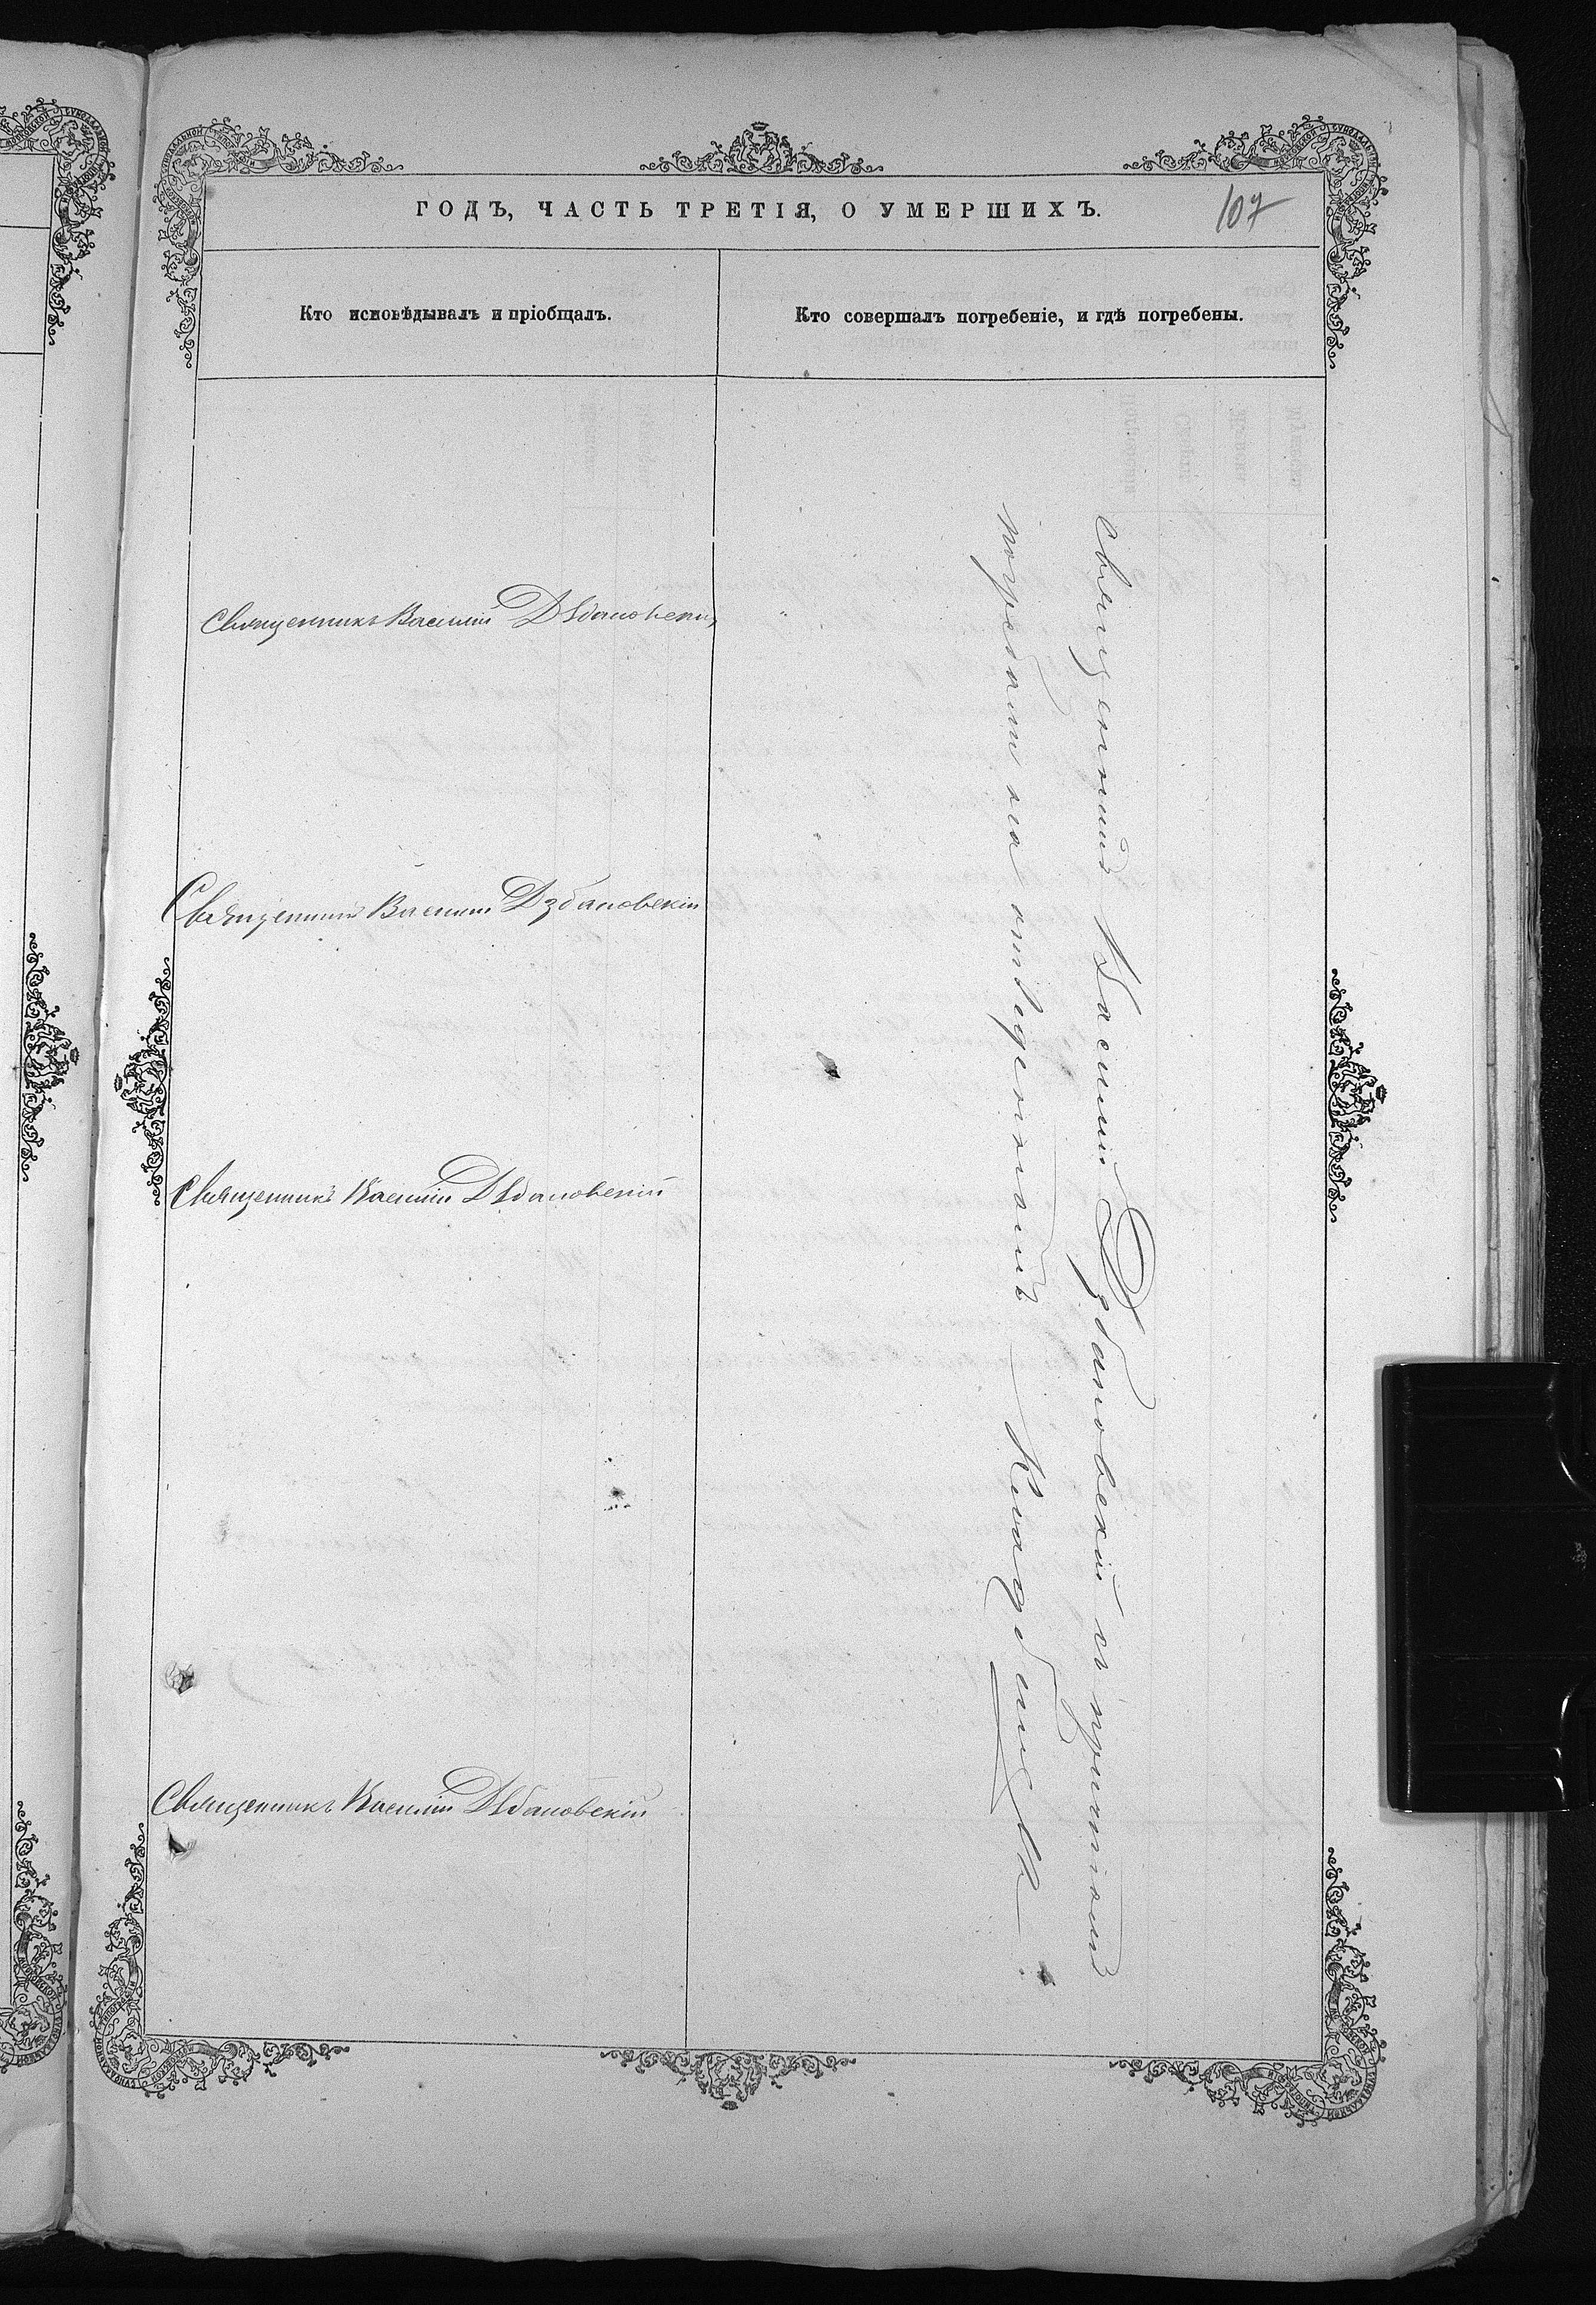 ГОДЪ, ЧАСТЬ ТРЕТІЯ, О УМЕРШИХЪ.
107
Кто исповѣдывалъ и пріобщалъ.
Кто совершалъ погребеніе, и гдѣ погребены.
Священникъ Василій Дзбановскій
Священникъ Василій Дзбановскій
Священникъ Василій Дзбановскій
Священникъ Василій Дзбановскій
Священникъ Василій Дзбановскій и причтомъ
погребены на отведенномъ Кладбищѣ